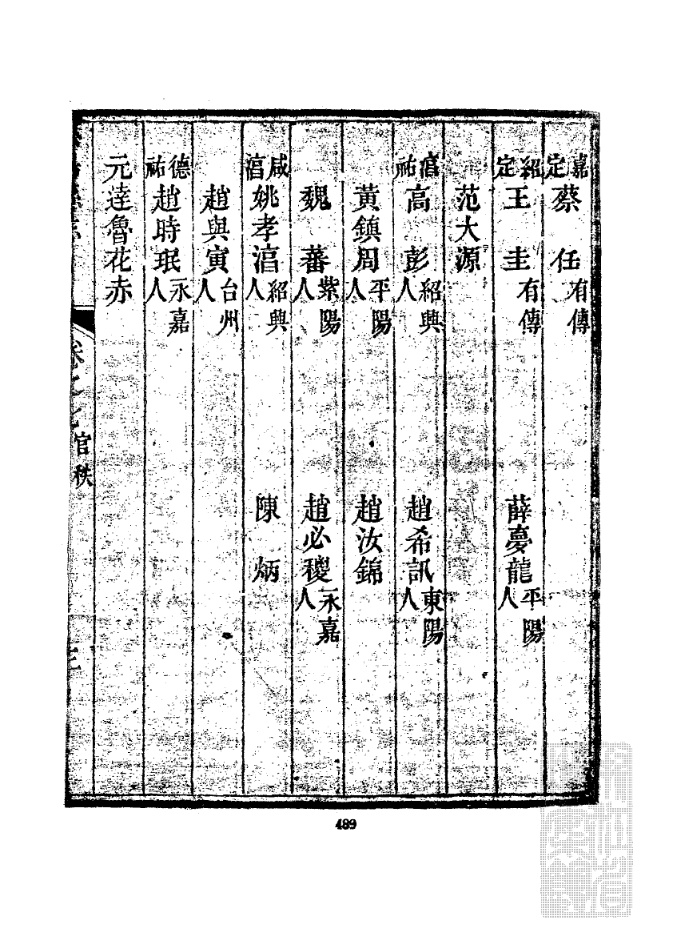 嘉定 蔡任 有傳
紹定 王圭 有傳 薛夢龍 平陽人
范大源
寶祐 高彭 紹興人 趙希訊 東陽人
黃鎮周 平陽人 趙汝錦
魏蕃 紫陽人 趙必稷 永嘉人
咸淳 姚孝淳 紹興人 陳炳
趙與寅 台州人
德祐 趙時珉 永嘉人
元達魯花赤
官秩
489